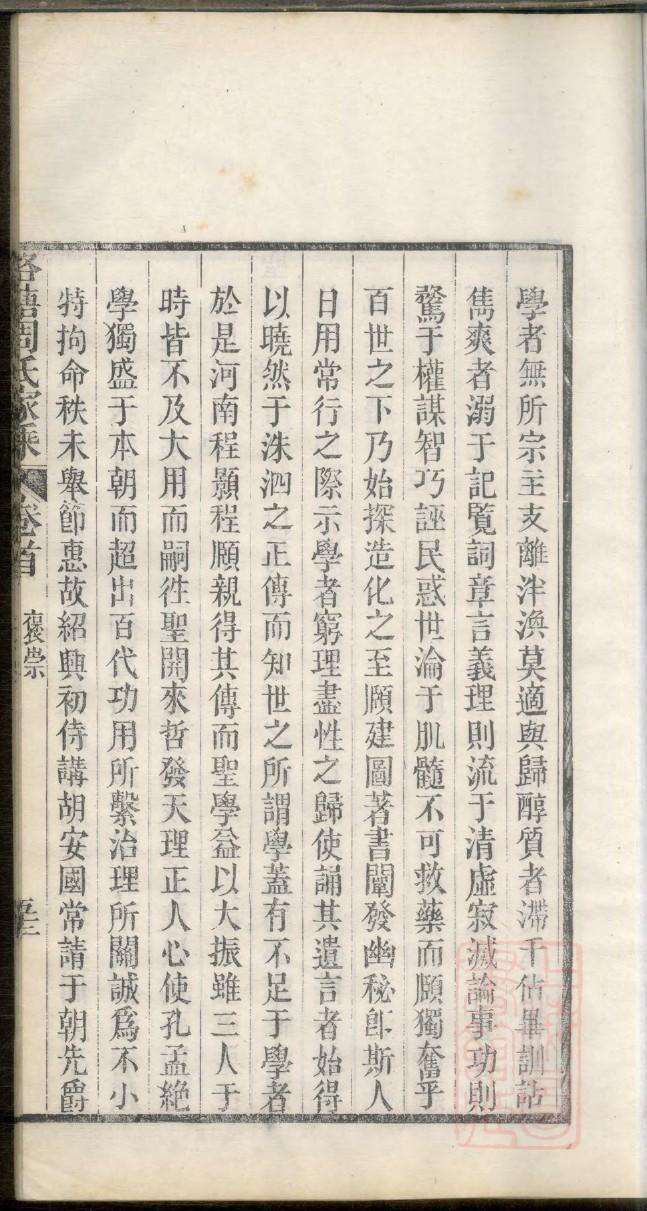 學者無所宗主支離泮渙莫適與歸醇質者滯于佔畢訓詁
雋爽者溺于記覽詞章言義理則流于清虛寂滅論事功則
驚于權謀智巧誣民惑世淪于肌髓不可救藥而頤獨奮乎
百世之下乃始探造化之至頤建圖著書闡發幽秘卽斯人
日用常行之際示學者窮理盡性之歸使誦其遺言者始得
以曉然于洙泗之正傳而知世之所謂學蓋有不足于學者
於是河南程顥程頤親得其傳而聖學益以大振雖三人于
時皆不及大用而嗣徃聖開來哲發天理正人心使孔孟絶
學獨盛于本朝而超出百代功用所繫治理所關誠爲不小
特拘命秩未舉節惠故紹興初侍講胡安國常請于朝先爵
周氏家乘
卷首
褒崇